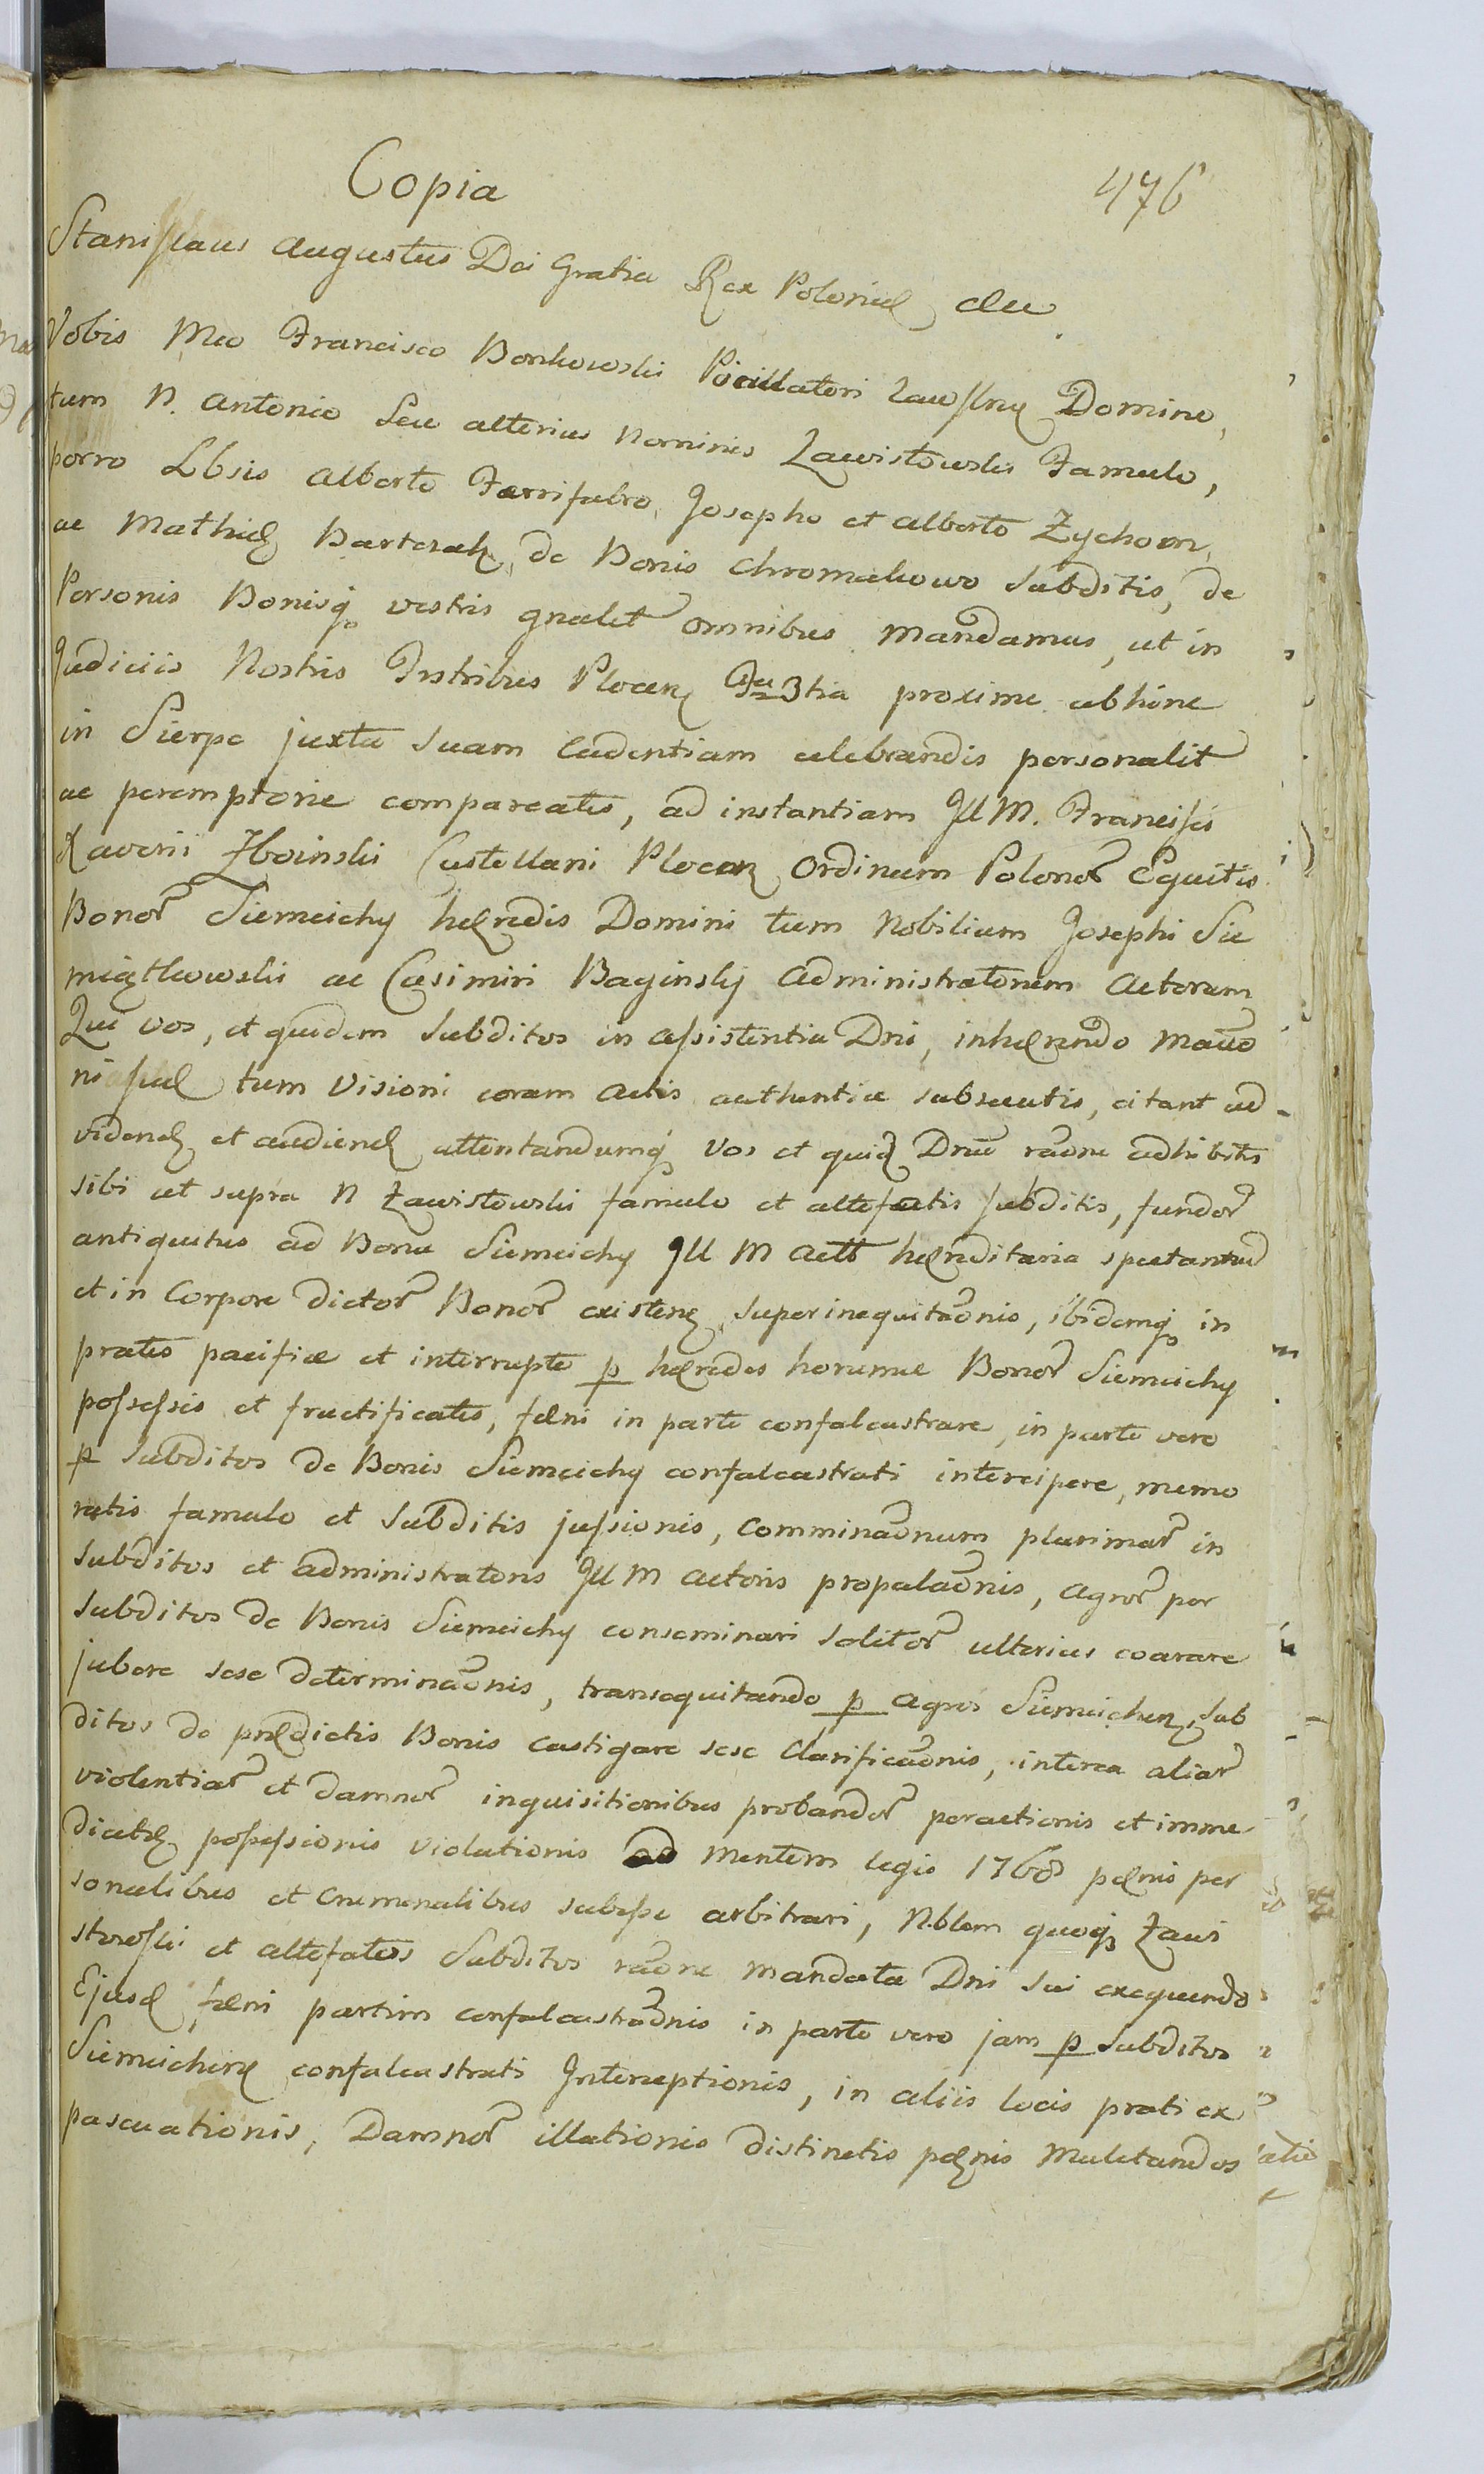 Copia
476
Stanislaus Augustus Dei Gratia Rex Poloniæ etc
Vobis Mco Francisco Bonkowski Pocillatori Domino,
tum N. Antonio Seu alterius Nominis Zawistowski Famulo,
porro Lbsis Alberto Ferrifabro, Josepho et Alberto Zychom,
ac Mathiæ Bartesak, de Bonis Chromakowo Subditis, de
Personis Bonisq vestris gnalit omnibus mandamus, ut in
Judiciis Nostris Trstribus Plocen Fa 3tia proxime abhinc
in Sierpc juxta Suam Cadentiam celebrandis personalit
ac peremptorie compareatis, ad instantiam Ill M. Francisci
Xaverii Zboinski Castellani Plocen Ordinum Polonor Equitis
Bonor Siemeichy hæredis Domini tum Nobilium Josephi Sie
miątkowski ac Casimiri Baginsky Administratorum Actorum
Qui vos, et quidem Subditos in assistentia Dni, inhærendo Mano
tum Visioni coram Actis authentice subsecutis, citant ad
videnđ et audienđ attentandumq Vos et quiđ Dnu raone adhibitis
sibi ut supra N Zawistowski famulo et altefatis subditis, fundor
antiquitus ad Bona Siemeichy Ill M Actt hæreditaria spectantiu
et in Corpore dictor Bonor existen, superinequitaonis, ibidemq in
pratis pacifice et interrupte p hæredes horumce Bonor Siemeichy
possessis et fructificatis, fæni in parte confalcastrare, in parte vero
p Subditos de Bonis Siemeichy confalcastrati intercipere, memo
ratis famulo et Subditis jussionis, Comminaonum plurimar in
Subditos et administratoris Ill M Actoris propalaonis, Agror per
Subditos de Bonis Siemeichy conseminari solitor ulterius coarare
jubere sese determinaonis, transequitando p Agros Siemeichen, Sub
ditos de prædictis Bonis castigare sese Clarificaonis, interea aliar
violentiar et damnor inquisitionibus probandor peractionis et imme
diatæ possessionis Violationis ad Mentem legis 1768 pænis per
sonalibus et Crumenalibus subesse arbitrari, Nblem quoq Zawi
stowski et altefatos Subditos raone Mandata Dni sui exequendo
Ejusđ fæni partim confalcastraonis in parte vero jam p Subditos
Siemeichen confalcastrati Interceptionis, in aliis locis prati ex
pascuationis, Damnor illationis distinctis pænis Mulctandos